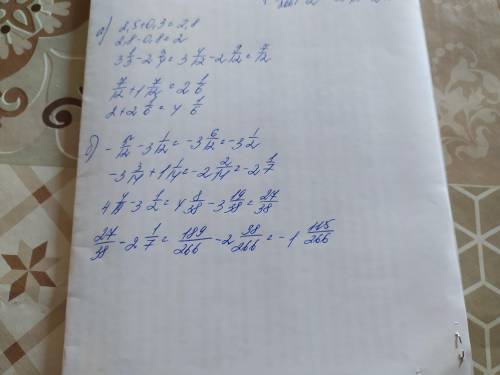 а) 2,5+0,3=2,8
2,8-0,8=2
3 1/3-2 3/4=3 4/12-2 9/12=7/12
7/12+1 7/12=2 1/6
2+2 1/6=4 1/6
б) -5/12-3 1/12=-3 6/12=-3 1/2
-3 3/14+1 1/14=-2 2/14=-2 1/7
4 4/19-3 1/2=4 8/38-3 19/38=27/38
27/38-2 1/7=189/266-2 38/266=-1 115/266